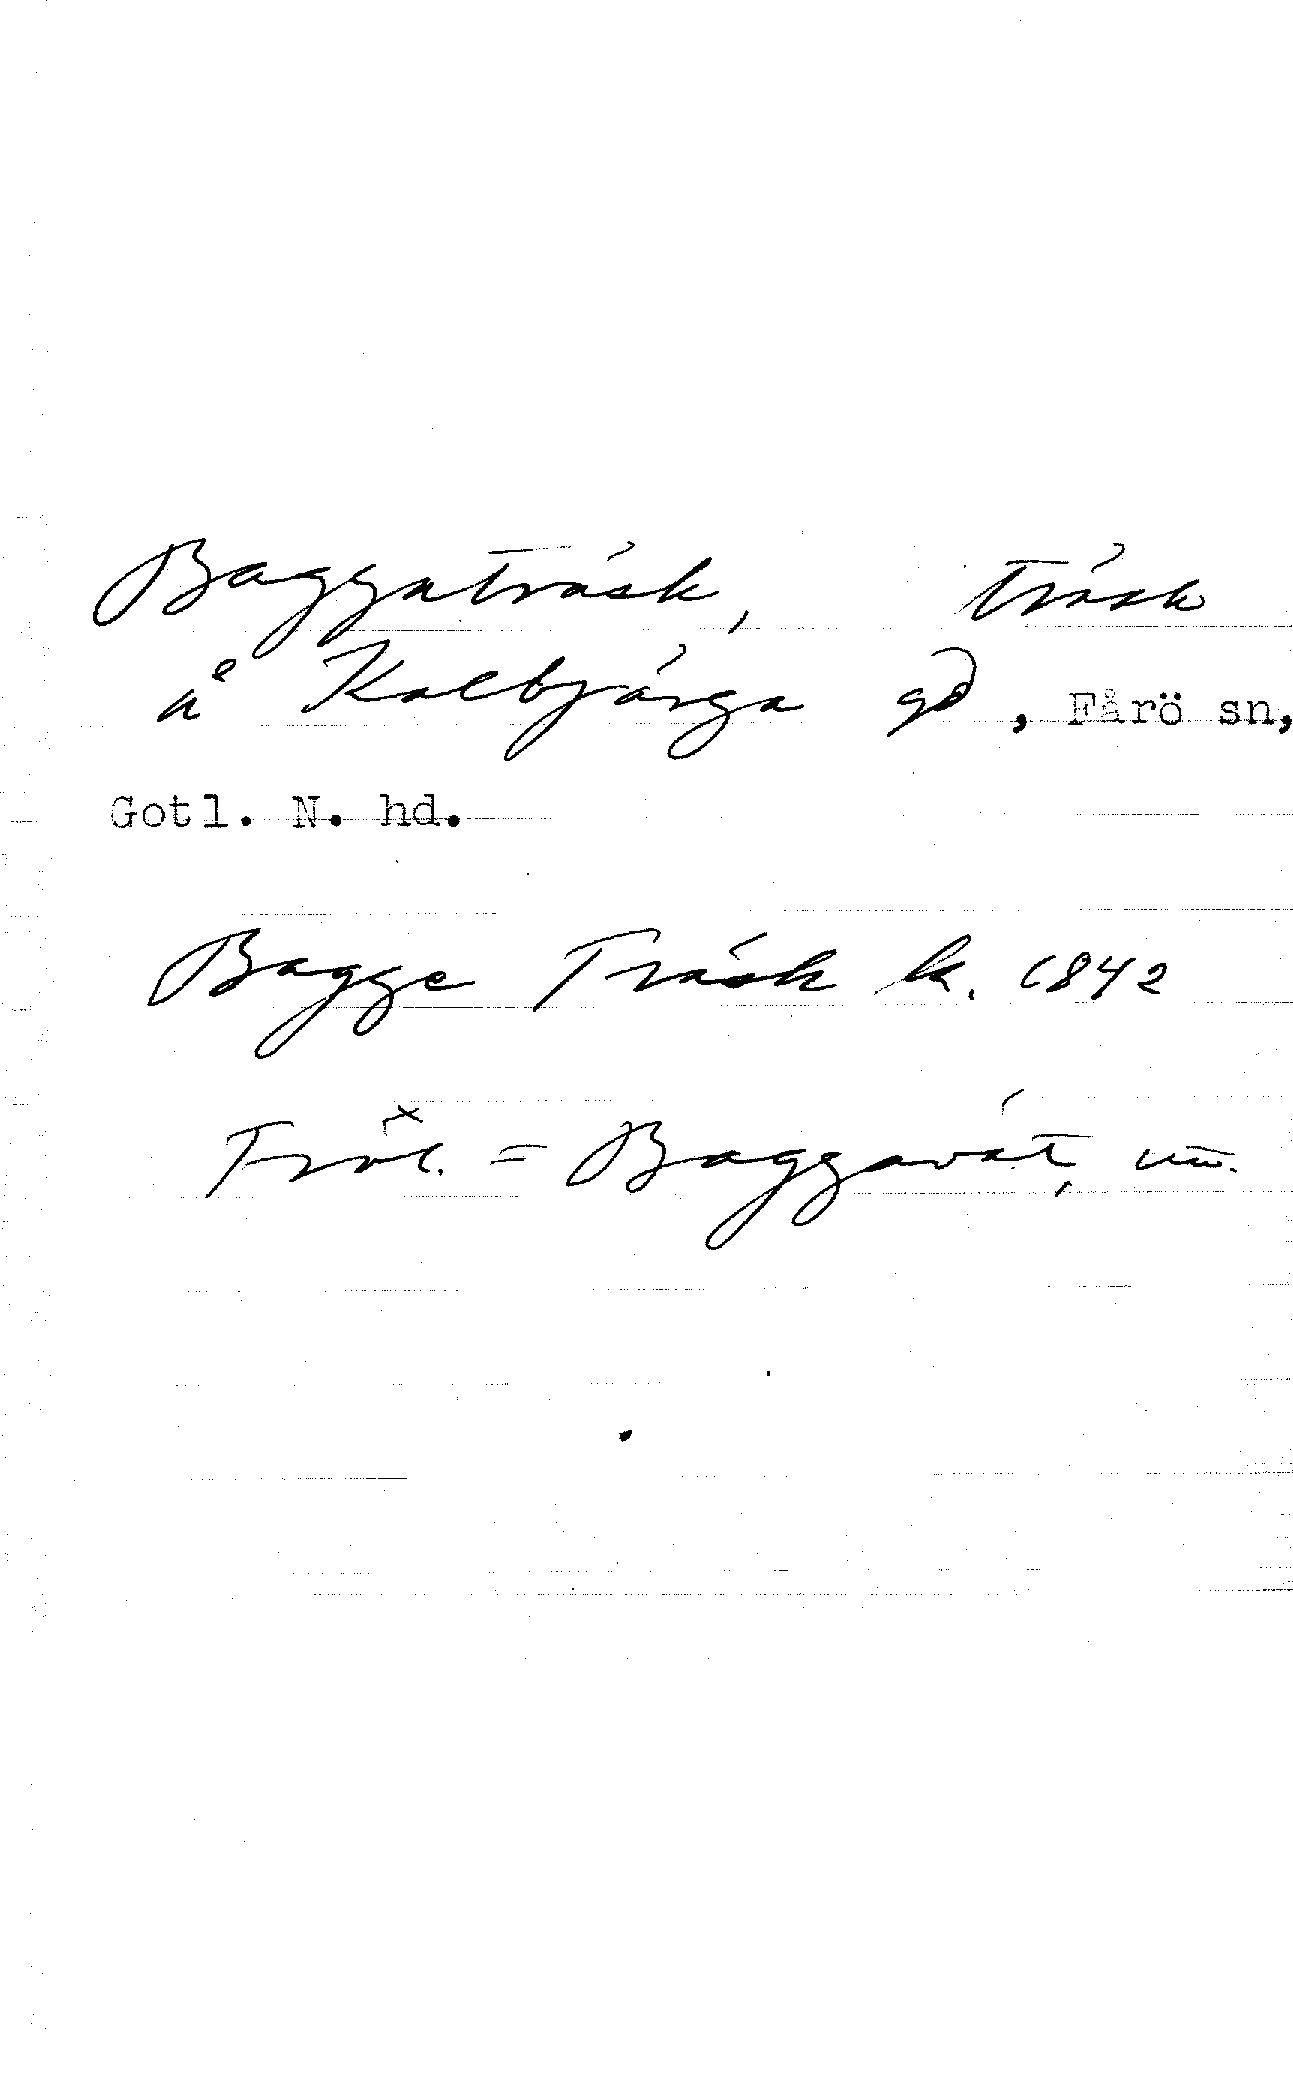 Baggaträsk, träsk
å Kalbjärga gd, Fårö sn,
Gotl. N. hd.
Bagge Träsk k. 1842
Trol. = Baggavät, nu.